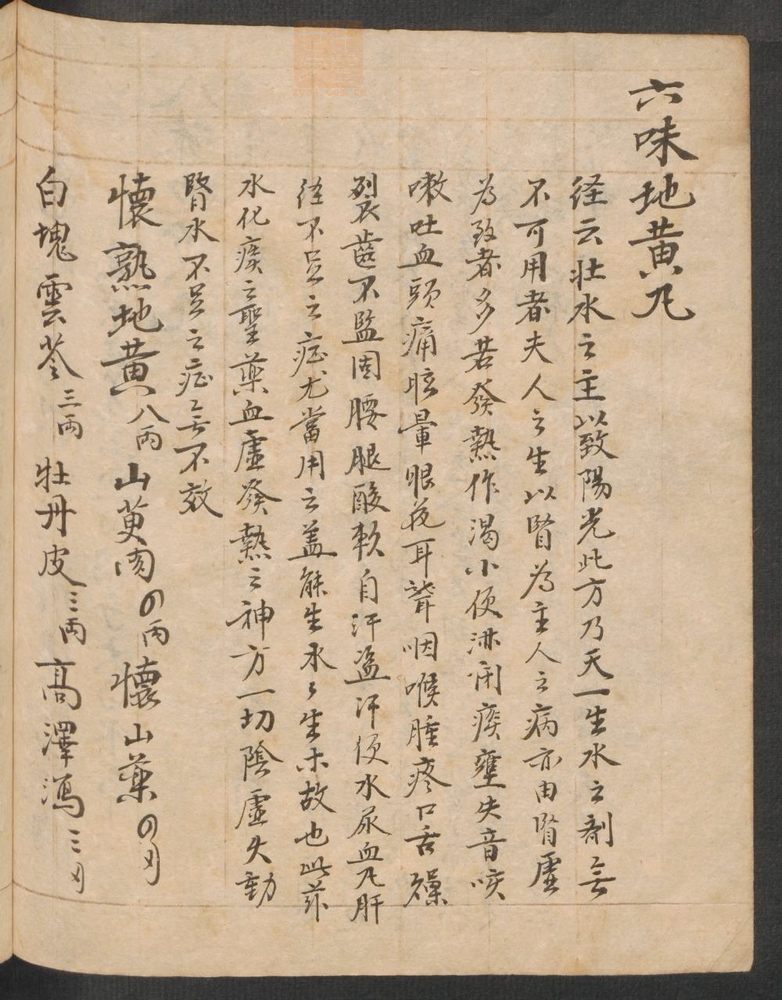 六味地黄凡
径云壮水之主以致陽光此方乃天一生水之剤無
不可用者夫人之生以腎為主人之病亦由腎虚
為致者多若發熱作渴小便淋闭痰壅失音咳
嗽吐血頭痛眩暈眼花耳聋咽喉腫疼口舌燥
裂齒不監固腰腿酸軟自汗盗汗便水尿血凡肝
径不足之症尤當用之盖觧生水ミ生木故也此
水化痰之聖藥血虚發熱之神方一切陰虚失動
腎水不足之症無不效
懷熟地黄八両 山萸肉の両 懷山藥の刃
白塊雲苓三両 牡丹皮三両 髙澤瀉三刃